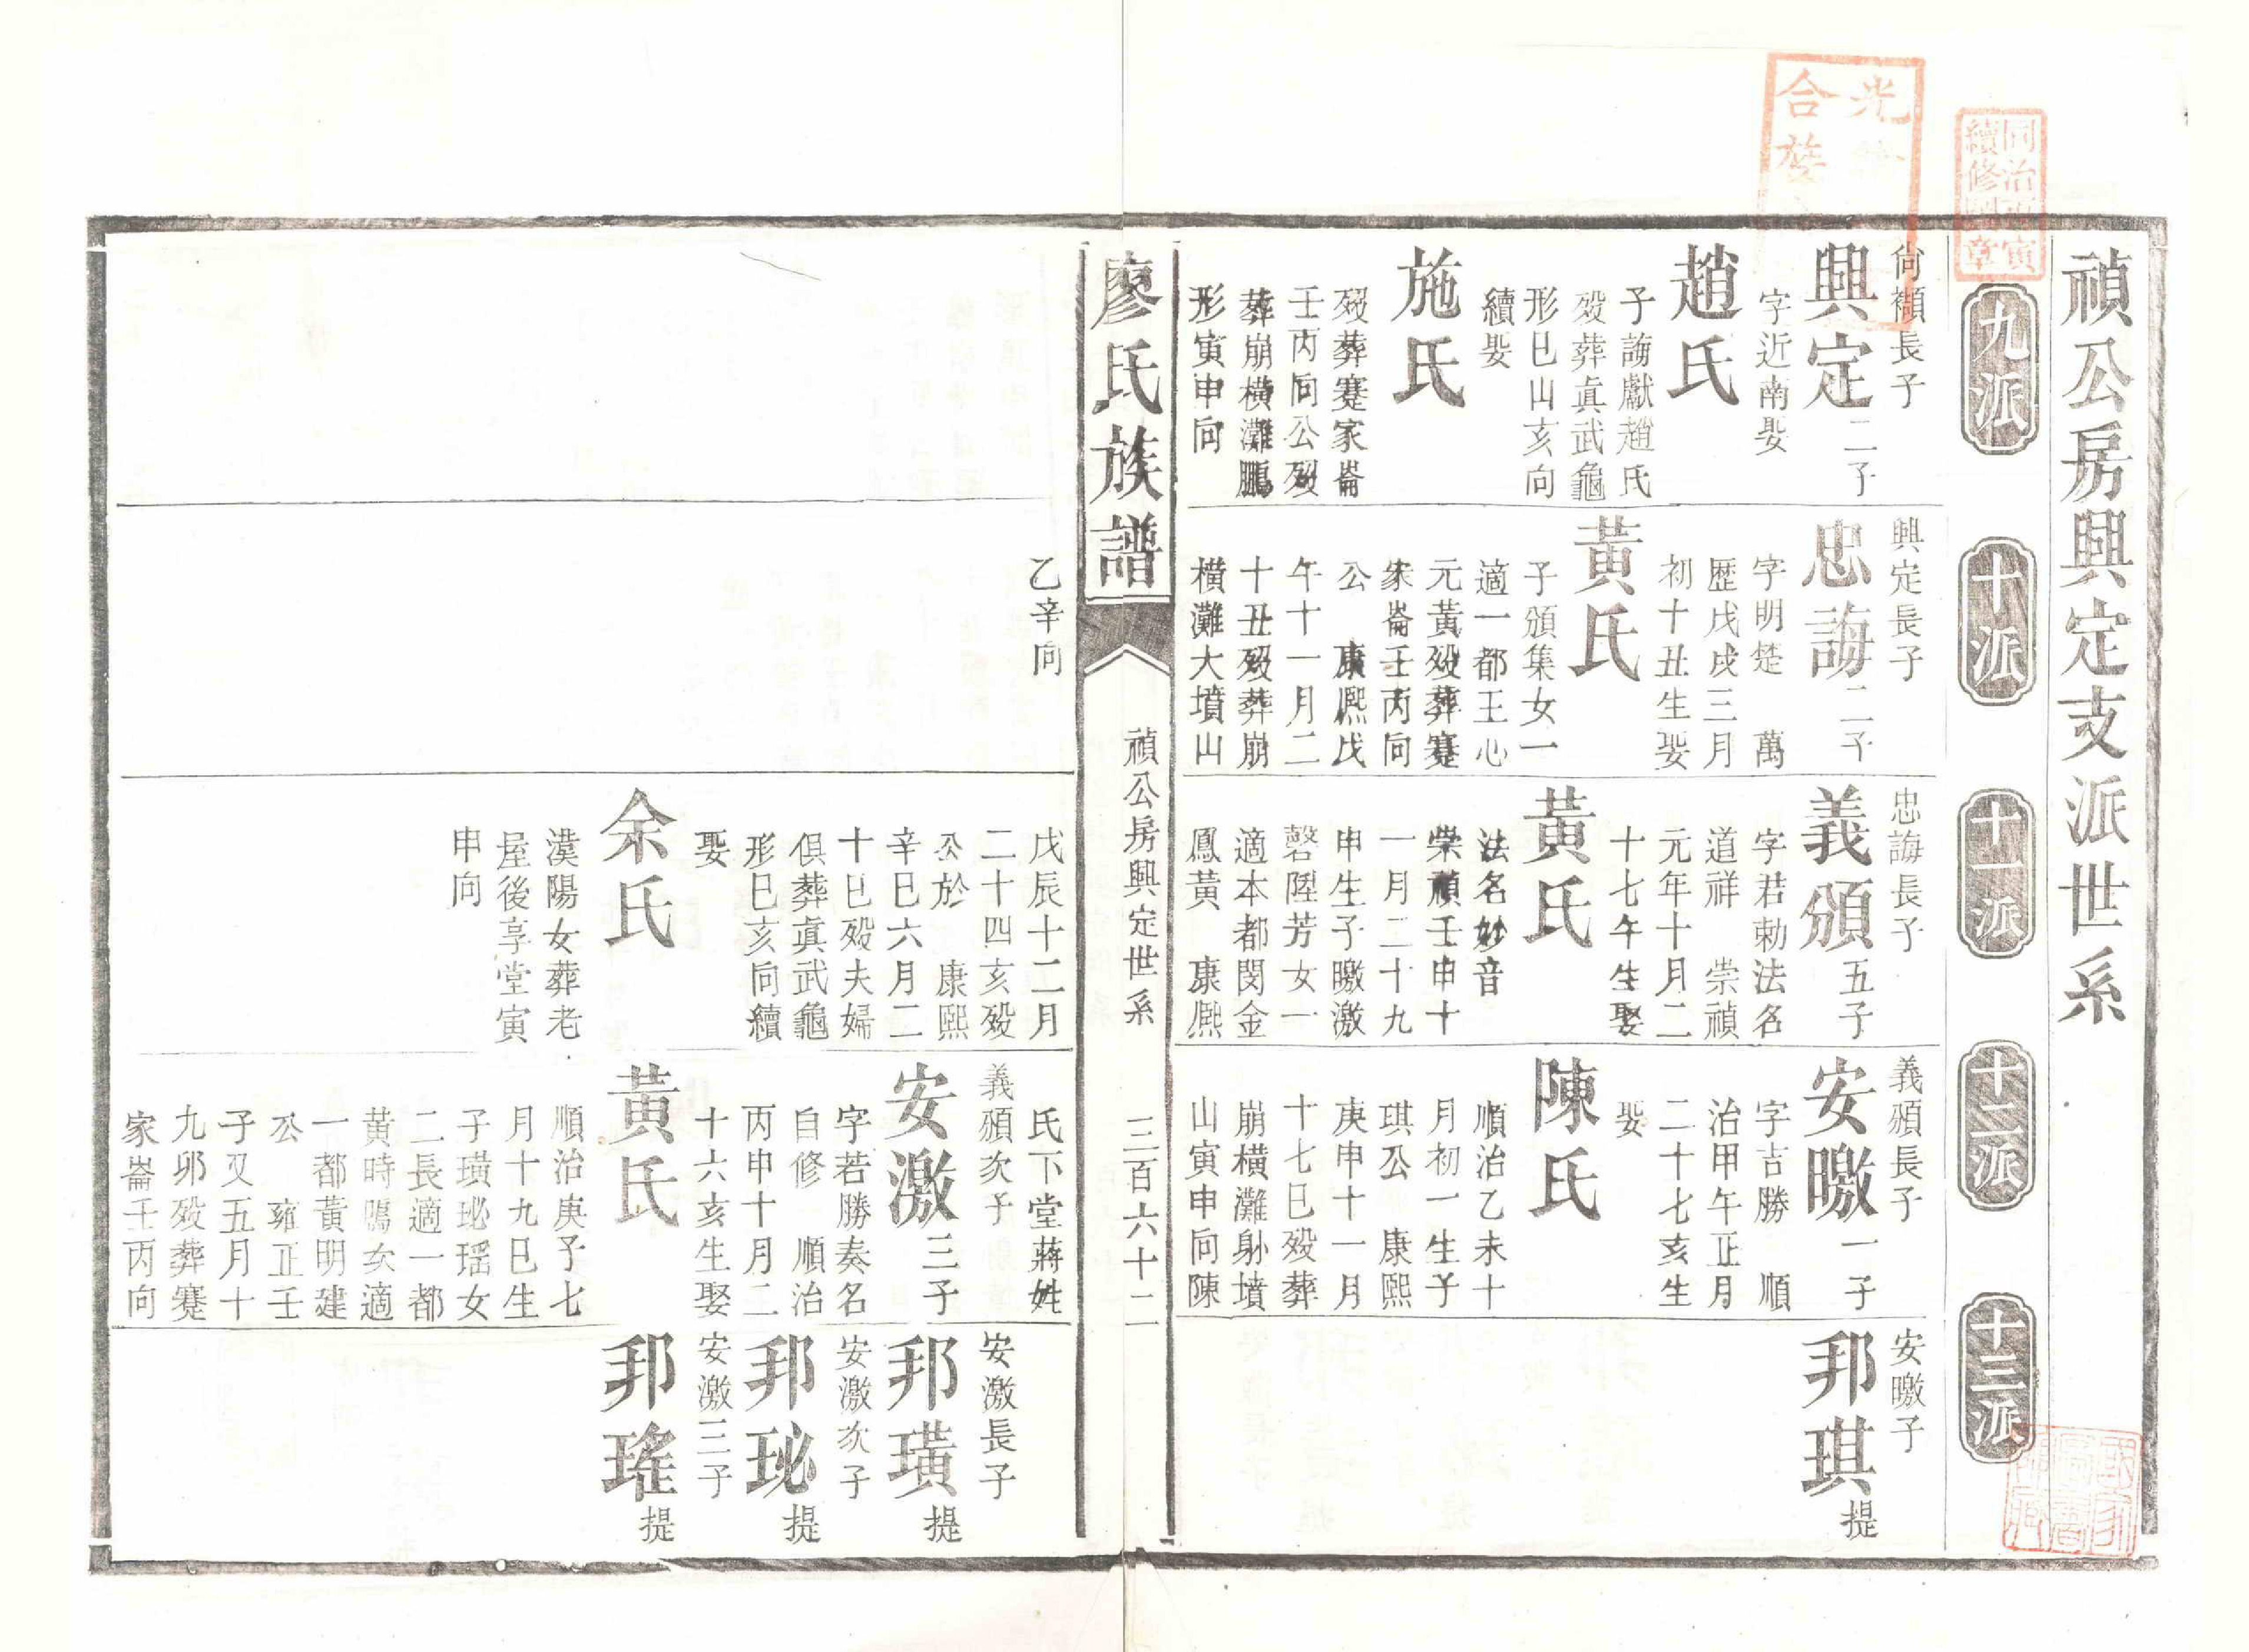 禎公房興定支派世系
同治丙寅
續修圖章
光
合族
九派
尙襭長子
興定二子
字近南娶
趙氏
子誨獻趙氏
歿葬眞武龜
形巳山亥向
續娶
施氏
歿葬蹇家崙
壬丙向公歿
葬崩橫灘鵬
形寅申向
十派
興定長子
忠誨二子
字明楚　萬
歷戊戌三月
初十丑生娶
黃氏
子頒集女一
適一都王心
元黃歿葬蹇
家崙壬丙向
公　康熙戊
午十一月二
十丑歿葬崩
橫灘大墳山
乙辛向
十一派
忠誨長子
義頒五子
字君勅法名
道祥　崇禎
元年十月二
十七午生娶
黃氏
法名妙音
崇禎壬申十
一月二十九
申生子曒激
磬陞芳女一
適本都閔金
鳳黃　康熙
戊辰十二月
二十四亥歿
公於　康熙
辛巳六月二
十巳歿夫婦
俱葬眞武龜
形巳亥向續
娶
余氏
漢陽女葬老
屋後享堂寅
申向
十二派
義頒長子
安曒一子
字吉勝　順
治甲午正月
二十七亥生
娶
陳氏
順治乙未十
月初一生子
琪公　康熙
庚申十一月
十七巳歿葬
崩橫灘射墳
山寅申向陳
氏下堂蔣姓
義頒次子
安激三子
字若勝奏名
自修　順治
丙申十月二
十六亥生娶
黃氏
順治庚子七
月十九巳生
子璜珌瑤女
二長適一都
黃時鳴次適
一都黃明建
公　雍正壬
子又五月十
九卯歿葬蹇
家崙壬丙向
十三派
安曒子
邦琪提
安激長子
邦璜提
安激次子
邦珌提
安激三子
邦瑤提
廖氏族譜
禎公房興定世系
三百六十二